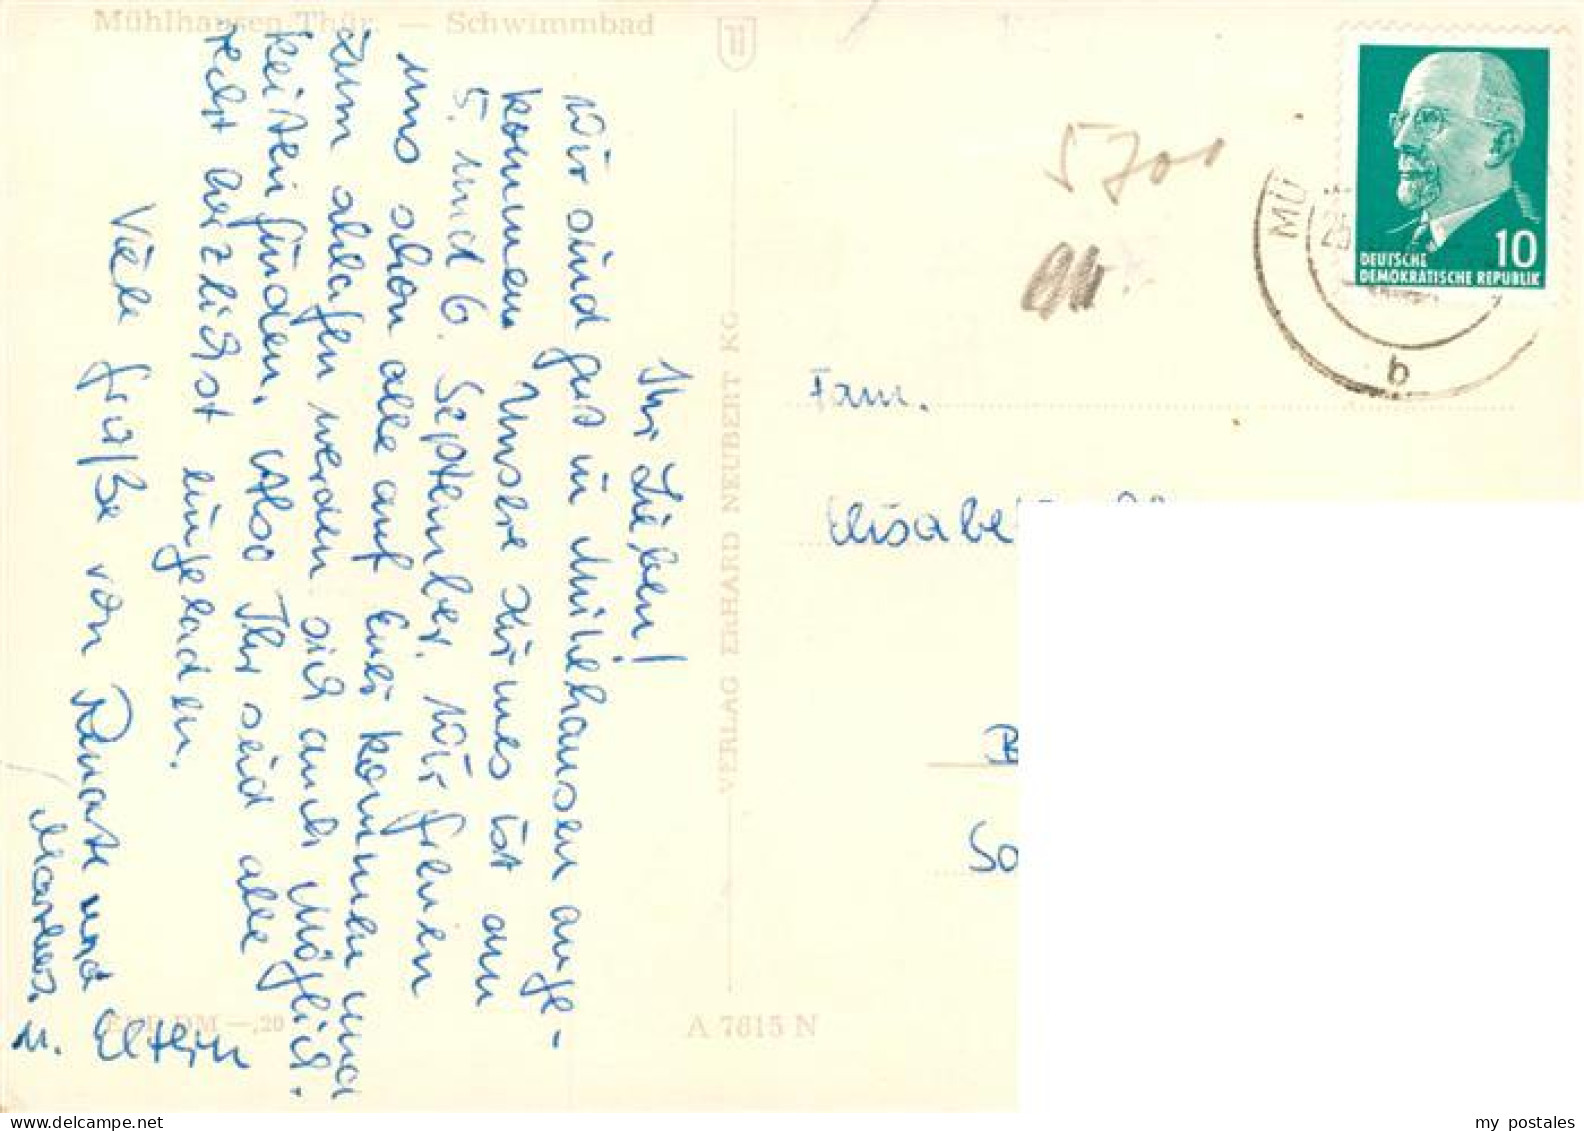 Mühlhausen Thür. — Schwimmbad
Ihr Lieben!
Wir sind gut in Mühlhausen ange-
kommen. Unsere Kirmes ist am
5. und 6. September. Wir freuen
uns schon alle auf Euer kommen und
zum schlafen werden sich auch Möglich-
keiten finden. Also Ihr seid alle
recht herzlichst eingeladen.
Viele Grüße von Renate und
Markus.
u. Eltern
EVP DM —,20
A 7615 N
VERLAG ERHARD NEUBERT KG
5701
DEUTSCHE
DEMOKRATISCHE REPUBLIK
10
MÜ
25
b
Fam.
Elisabet
So
my postales